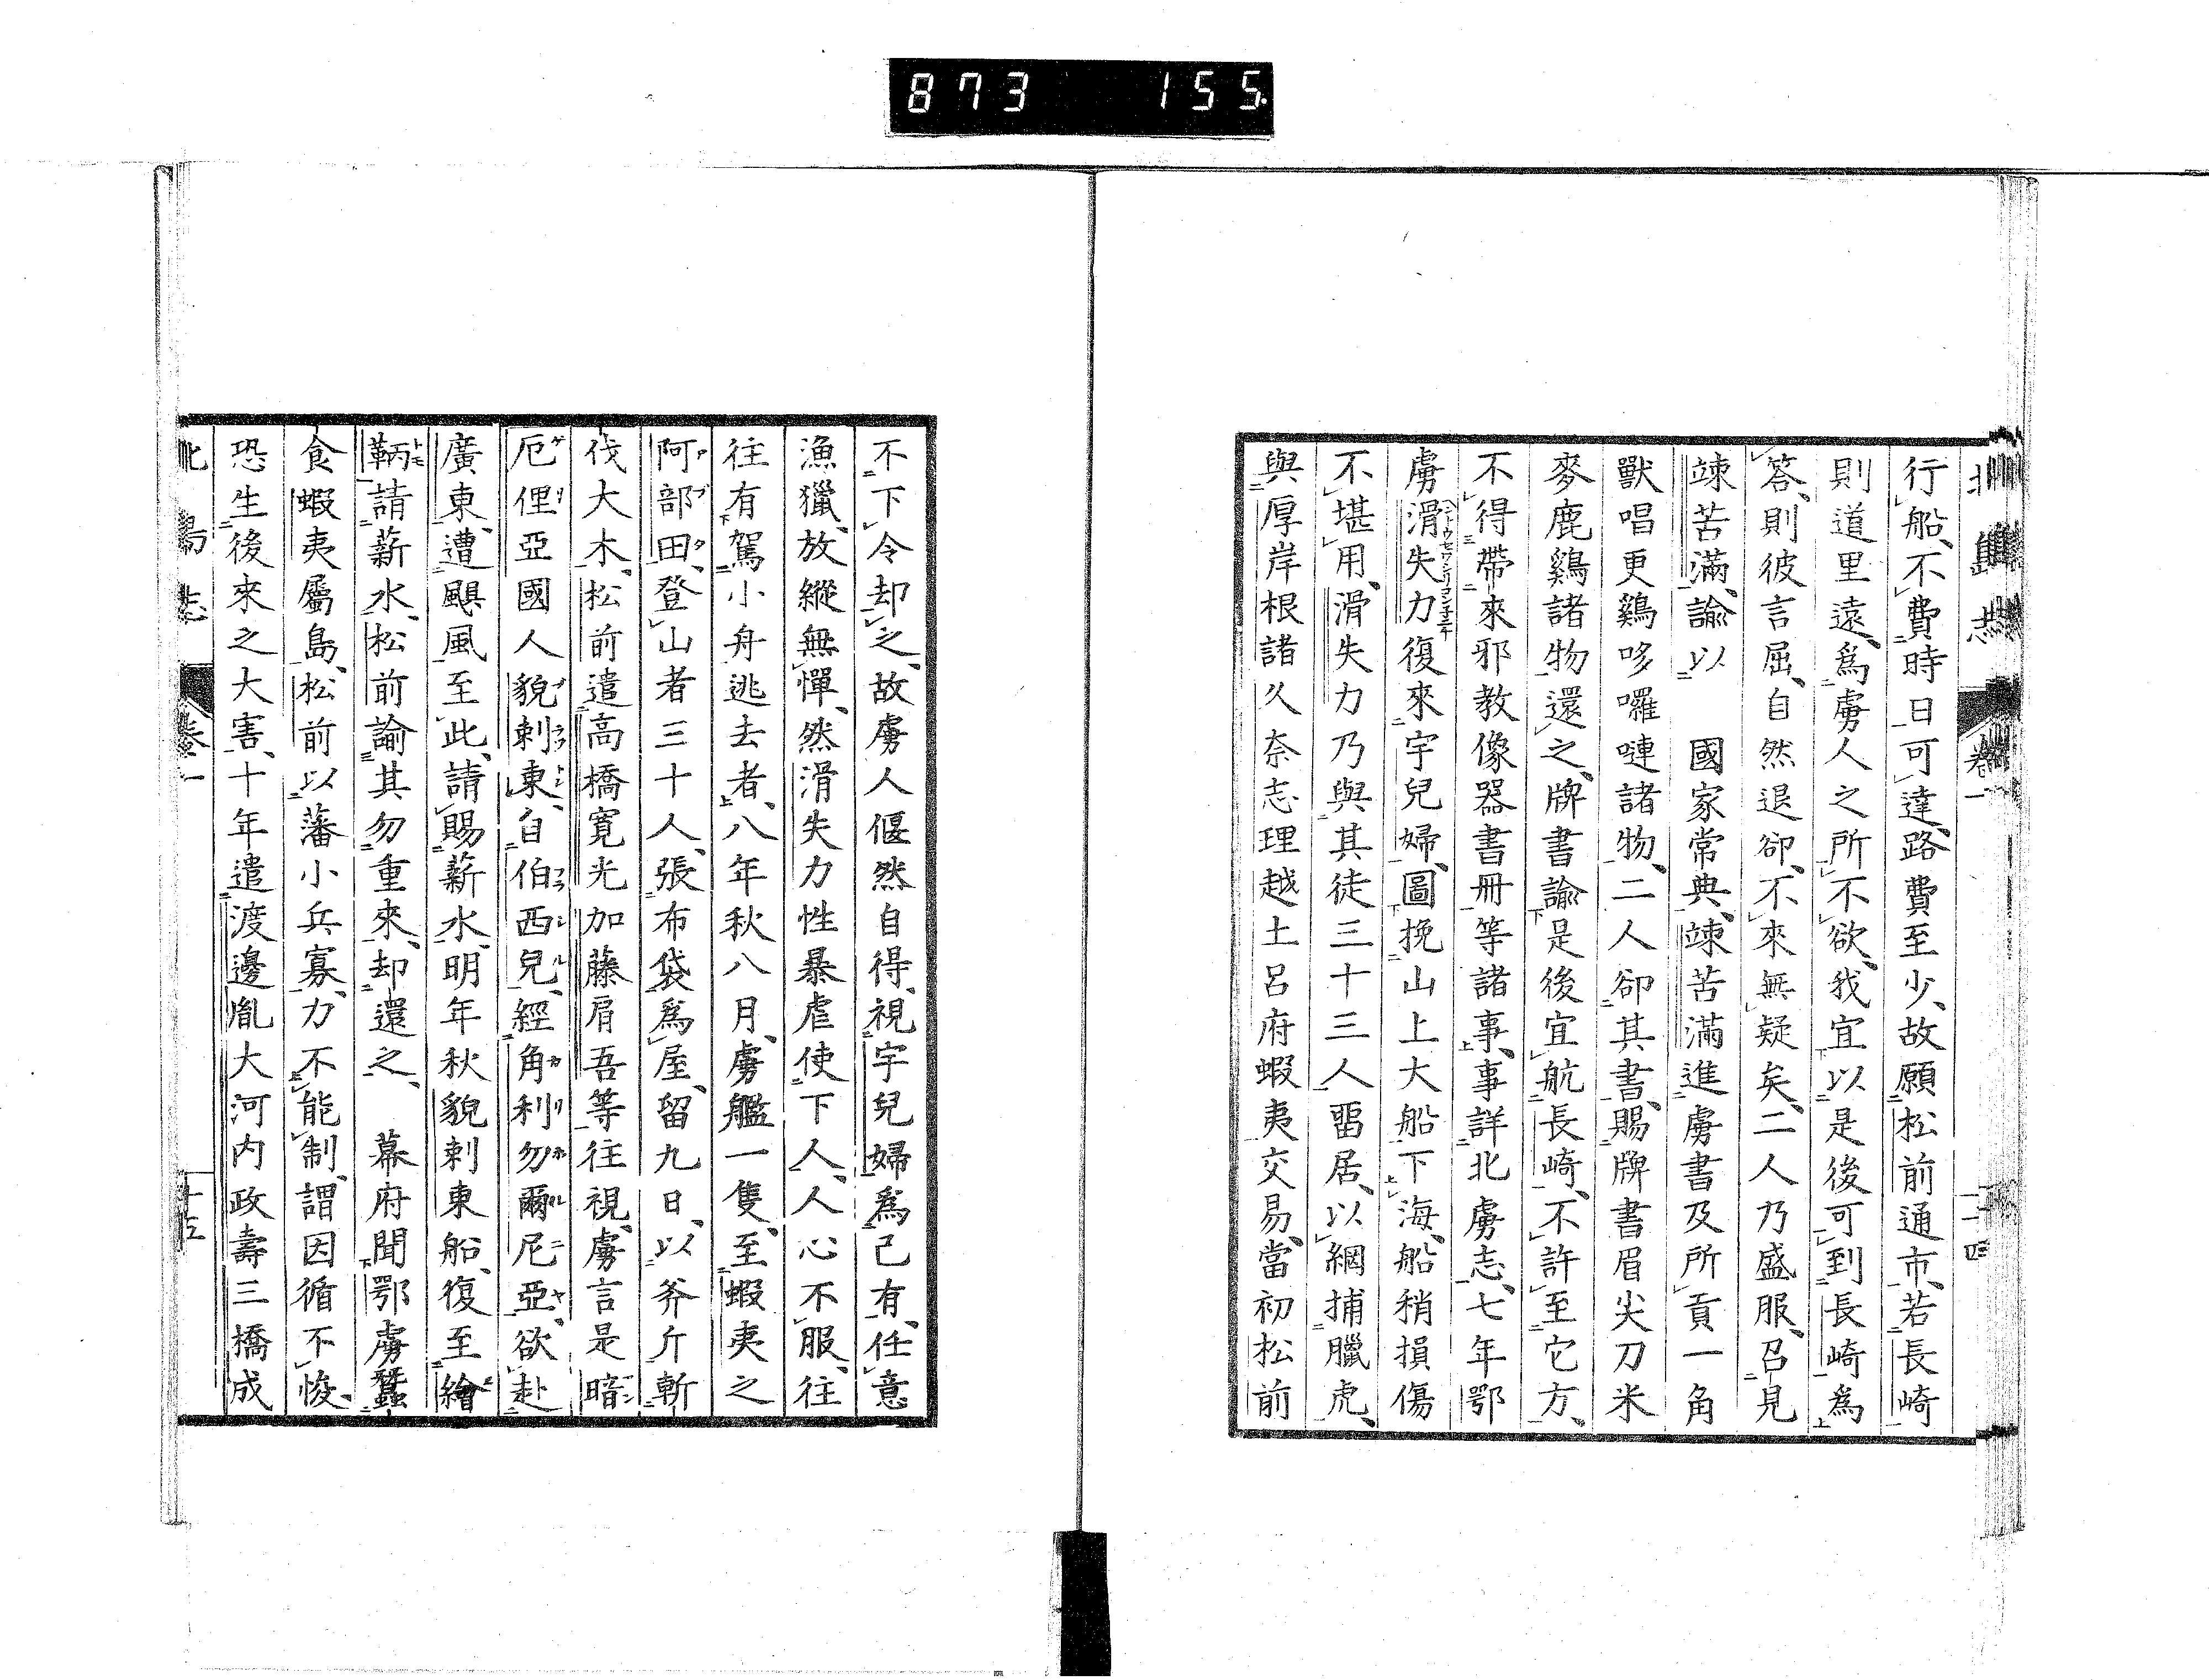 873 155
北島志 卷一 二十四
行船、不費時日可達、路費至少、故願松前通市、若長崎
則道里遠、爲虜人之所不欲、我宜以是後可到長崎爲
答、則彼言屈、自然退卻、不來無疑矣、二人乃盛服、召見
竦苦滿、諭以 國家常典、竦苦滿進虜書及所貢一角
獸唱更鷄哆囉嗹諸物、二人卻其書、賜牌書眉尖刀米
麥鹿鷄諸物還之、牌書諭是後宜航長崎、不許至它方、
不得帶來邪教像器書冊等諸事、事詳北虜志、七年鄂
虜滑失力復來宇兒婦、圖挽山上大船下海、船稍損傷
不堪用、滑失力乃與其徒三十三人畱居、以網捕臘虎、
與厚岸根諸久奈志理越土呂府蝦夷交易、當初松前
不下令却之、故虜人偃然自得、視宇兒婦爲己有、任意
漁獵、放縱無憚、然滑失力性暴虐使下人、人心不服、往
往有駕小舟逃去者、八年秋八月、虜艦一隻、至蝦夷之
阿部田、登山者三十人、張布袋爲屋、留九日、以斧斤斬
伐大木、松前遣高橋寛光加藤肩吾等往視、虜言是暗
厄俚亞國人貌剌東、自伯西兒、經角利勿爾尼亞、欲赴
廣東、遭颶風至此、請賜薪水、明年秋貌剌東船、復至繪
鞆請薪水、松前諭其勿重來、却還之、 幕府聞鄂虜蠶
食蝦夷屬島、松前以藩小兵寡、力不能制、謂因循不悛、
恐生後來之大害、十年遣渡邊胤大河内政壽三橋成
北島志 卷一 十五